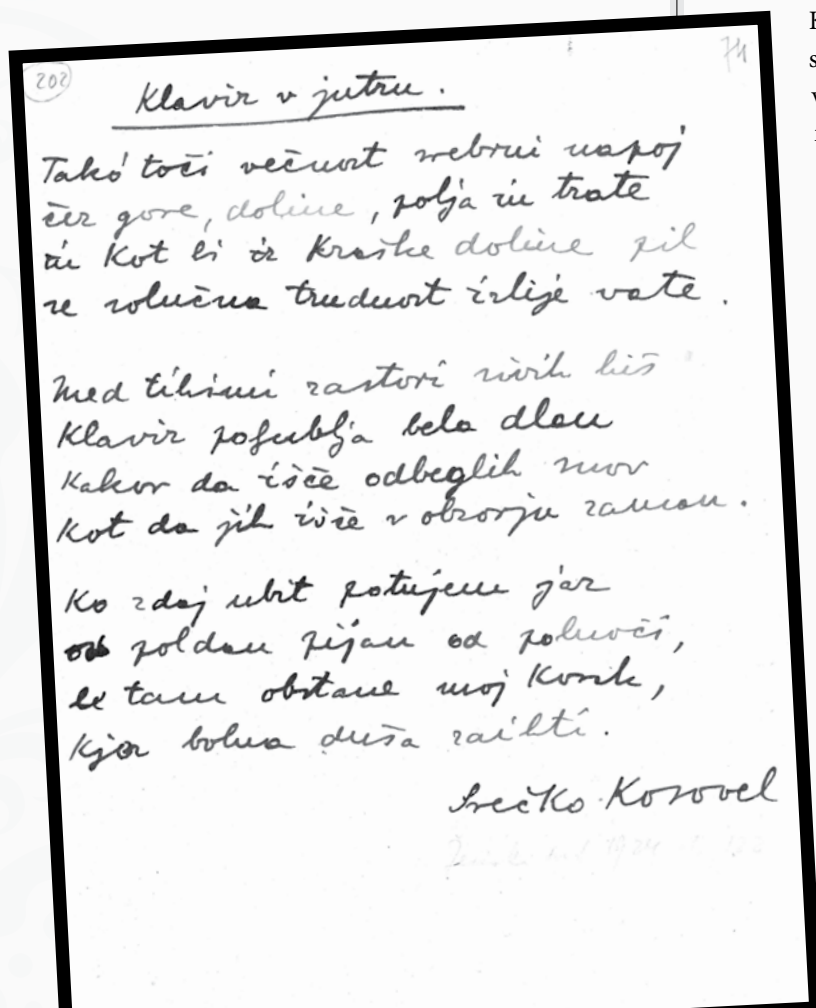 202
74
Klavir v jutru.
Takó toči večnost srebrni napoj
čez gore, doline, polja in trate
in kot bi iz kraške doline pil
se solnčna trudnost izlije vate.
Med tihimi zastori sivih hiš
klavir pogublja bela dlan
kakor da išče odbeglih snov
kot da jih išče v obzorju zaman.
Ko zdaj ubit potujem jaz
poldan pijan od polnoči,
le tam obstane moj korak,
kjer bolna duša zaihti.
Srečko Kosovel